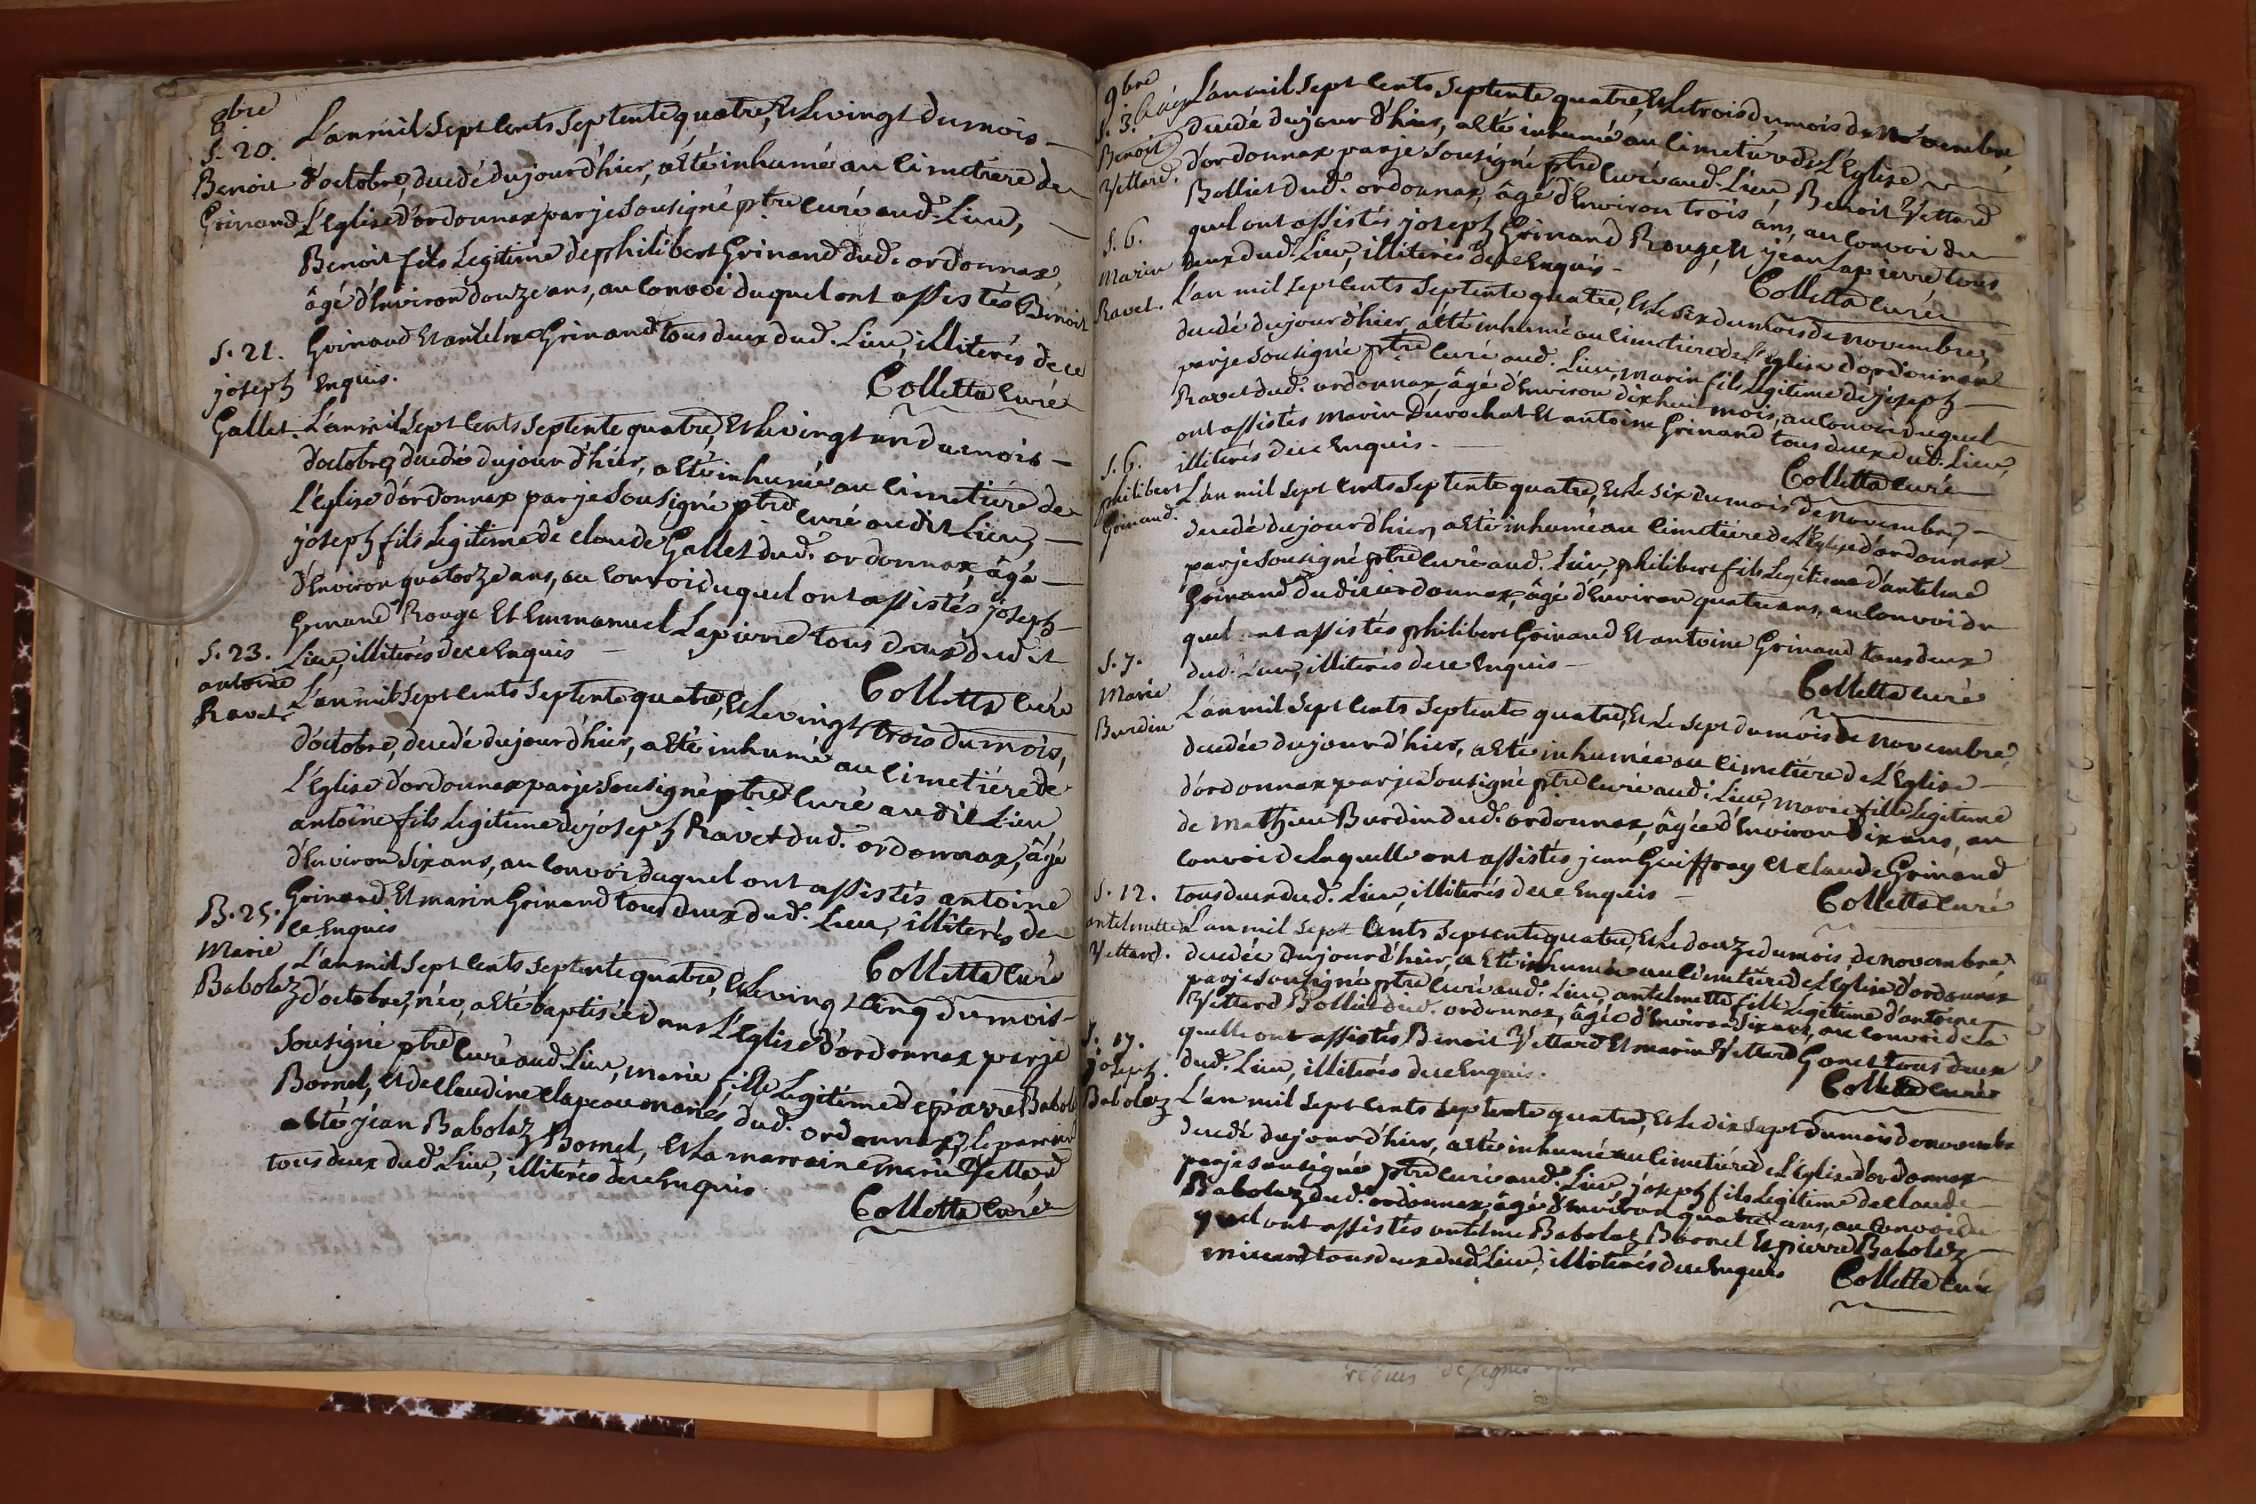 8bre
S. 20.
Benoit
Grinand
L'an mil sept cents septente quatre, et le vingt du mois
d'octobre, decedé du jour d'hier, a eté inhumé au cimetiere de
L'eglise d'ordonnax par je sousigné ptre curé aud. Lieu,
Benoit fils legitime de philibert Grinand dud. ordonnax,
âgé d'environ douze ans, au convoi duquel ont assistés Benoit
Grinand et antelme Grinand tous deux dud. Lieu, illiterés de ce
enquis.
Colletta curé
S. 21.
joseph
Gallet.
L'an mil sept cents septente quatre, et le vingt un du mois
d'octobre, decedé du jour d'hier, a eté inhumé au cimetiére de
L'église d'ordonnax par je sousigné ptre curé audit Lieu,
joseph fils legitime de claude Gallet dud. ordonnax, âgé
d'environ quatorze ans, au convoi duquel ont assistés joseph
Grinand Rouge et emmanuel Lapierre tous deux dudit
Lieu, illiterés de ce enquis
Colletta curé
S. 23.
antoine
Ravet.
L'an mil sept cents septente quatre, et le vingt trois du mois,
d'octobre, decedé du jour d'hier, a eté inhumé au cimetiére de
L'église d'ordonnax par je sousigné ptre curé audit Lieu
antoine fils legitime de joseph Ravet dud. ordonnax, âgé
d'environ six ans, au convoi duquel ont assistés antoine
Grinand et marin Grinand tous deux dud. Lieu, illiterés de
ce enquis
Colletta curé
B. 25.
Marie
Babolaz
L'an mil sept cents septente quatre, et le vingt cinq du mois
d'octobre, née, a eté baptisée dans L'Eglise d'ordonnax par je
sousigné ptre curé aud. Lieu, marie fille legitime de pierre Babolaz
Bornel, et de claudine clapeau mariés dud. ordonnax, le parrain
a eté jean Babolaz Bornel, et la marraine marie Vettard
tous deux dud. Lieu, illiterés de ce enquis
Colletta curé
9bre
S. 3.
Benoit
Vettard.
L'an mil sept cents septente quatre, et le trois du mois de novembre,
decedé du jour d'hier, a eté inhumé au cimetiére de L'Eglise
d'ordonnax par je sousigné ptre curé aud. Lieu, Benoit Vettard
Bolliet dud. ordonnax, âgé d'environ trois ans, au convoi du
quel ont assistés joseph Grinand Rouge, et jean Lapierre tous
deux dud. Lieu, illiterés de ce enquis
Colletta curé
S. 6.
Marin
Ravet.
L'an mil sept cents septente quatre, et le six du mois de novembre,
decedé du jour d'hier, a eté inhumé au cimetiére de L'église d'ordonnax
par je sousigné ptre curé aud. Lieu, marin fils legitime de joseph
Ravet dud. ordonnax, âgé d'environ dix huit mois, au convoi duquel
ont assistés marin Durochat et antoine Grinand tous deux dud. Lieu,
illiterés de ce enquis.
Colletta curé
S. 6.
philibert
Grinand.
L'an mil sept cents septente quatre, et le six du mois de novembre,
decedé du jour d'hier, a eté inhumé au cimetiére de L'église d'ordonnax
par je sousigné ptre curé aud. Lieu, philibert fils legitime d'antelme
Grinand dudit ordonnax, âgé d'environ quatre ans, au convoi du
quel ont assistés philibert Grinand et antoine Grinand tous deux
dud. Lieu, illiterés de ce enquis
Colletta curé
S. 7.
Marie
Burdin
L'an mil sept cents septente quatre, et le sept du mois de novembre,
decedée du jour d'hier, a eté inhumée au cimetiére de L'Eglise
d'ordonnax par je sousigné ptre curé aud. Lieu, marie fille legitime
de Mathieu Burdin dud. ordonnax, âgée d'environ dix ans, au
convoi de Laquelle ont assistés jean Guiffray et claude Grinand
tous deux dud. Lieu, illiterés de ce enquis
Colletta curé
S. 12.
antelmette
Vettard.
L'an mil sept cents septente quatre, et le douze du mois, de novembre
decedée du jour d'hier, a eté inhumée au cimetiére de L'Eglise d'ordonnax
par je sousigné ptre curé aud. Lieu, antelmette fille legitime d'antoine
Vettard Bolliet dud. ordonnax, âgée d'environ six ans, au convoi de la
quelle ont assistés Benoit Vettard et marin Vettard Gonet tous deux
dud. Lieu, illiterés de ce enquis.
Colletta curé
S. 17.
joseph
Babolaz
L'an mil sept cents septente quatre, et le dix sept du mois de novembre
decedé du jour d'hier, a eté inhumé au cimetiére de L'Eglise d'ordonnax
par je sousigné ptre curé aud. Lieu joseph fils legitime de claude
Babolaz dud. ordonnax, âgé d'environ quatre ans, au convoi du
quel ont assistés antelme Babolaz Bornel et pierre Babolaz
tous deux dud. Lieu, illiterés de ce enquis
Colletta curé